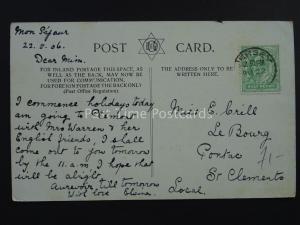 Mon Séjour
22. 8. 06.
Dear Mim.
POST CARD.
FOR INLAND POSTAGE THIS SPACE, AS
WELL AS THE BACK, MAY NOW BE
USED FOR COMMUNICATION.
FOR FOREIGN POSTAGE THE BACK ONLY
(Post Office Regulation).
THE ADDRESS ONLY TO BE
WRITTEN HERE.
I commence holidays today
am going to
with Mrs Warren & her
English friends, I shall
come out to you tomorrow
by the 11. a.m. I hope that
will be alright.
Aurevoir till tomorrow
With love
Miss E. Crill
Le Bourg
Pontac
St Clements
Local.
1/-
Past Time Postcards